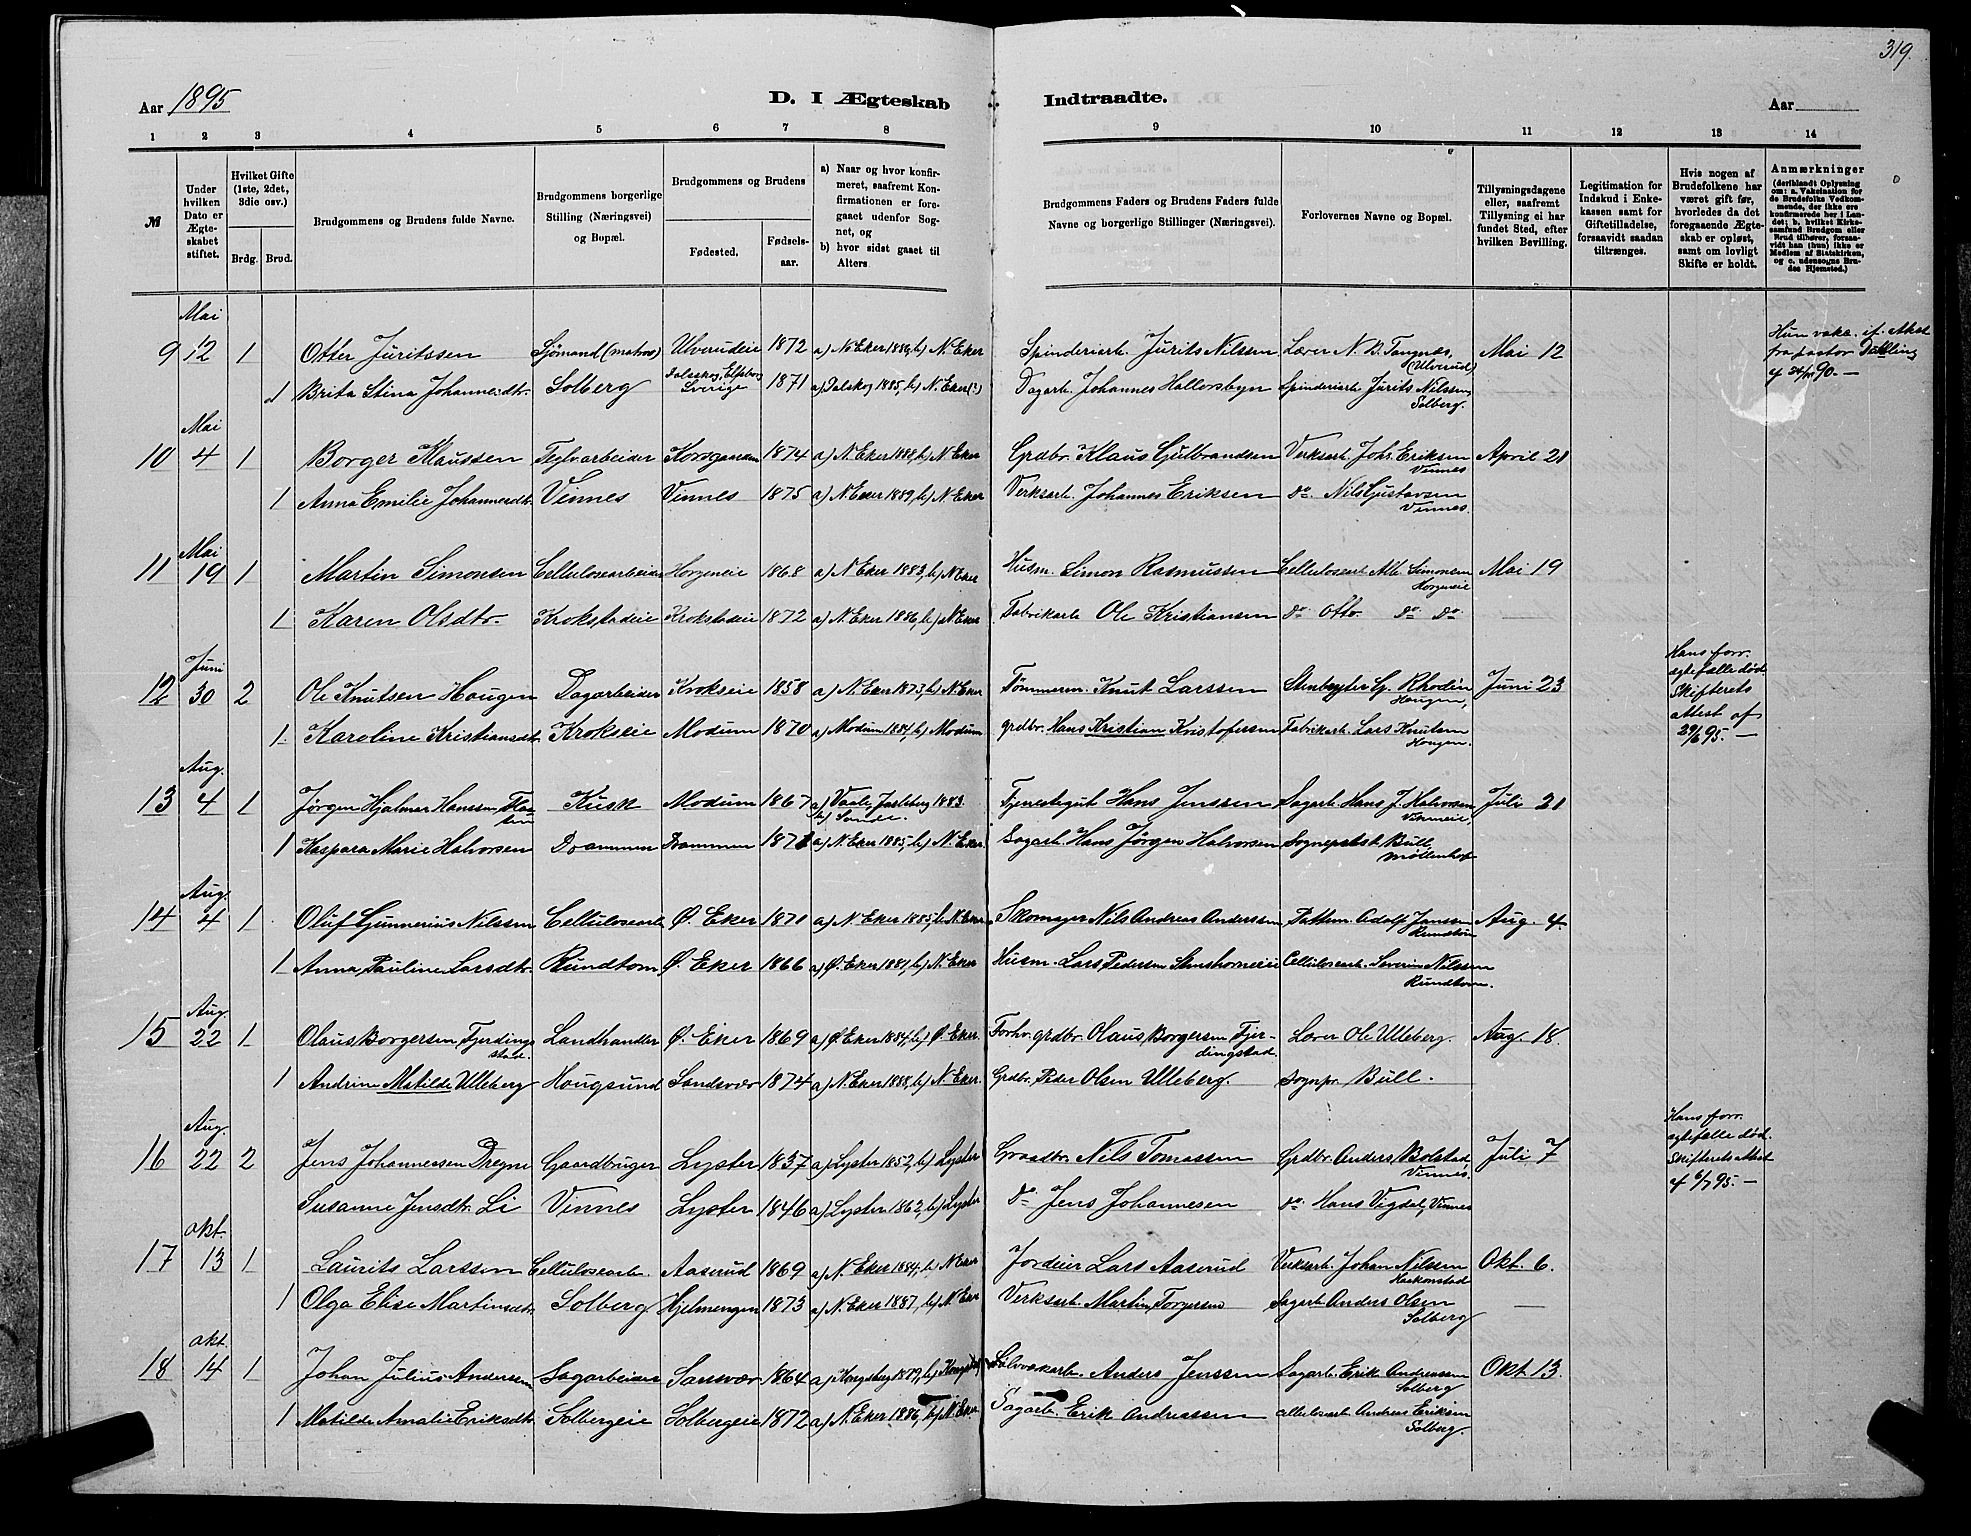 319.
Aar 1895
D. I Ægteskab Indtraadte.
Aar
1 2 3 4 5 6 7 8 9 10 11 12 13 14
№
Under hvilken Dato er Ægteskabet stiftet.
Hvilket Gifte (1ste, 2det, 3die osv.)
Brdg. Brud.
Brudgommens og Brudens fulde Navne.
Brudgommens borgerlige Stilling (Næringsvei) og Bopæl.
Brudgommens og Brudens
Fødested. Fødselsaar.
a) Naar og hvor konfirmeret, saafremt Konfirmationen er foregaaet udenfor Sognet, og
b) hvor sidst gaaet til Alters
Brudgommens Faders og Brudens Faders fulde Navne og borgerlige Stillinger (Næringsvei).
Forlovernes Navne og Bopæl.
Tillysningsdagene eller, saafremt Tillysning ei har fundet Sted, efter hvilken Bevilling.
Legitimation for Indskud i Enkekassen samt for Giftetilladelse, forsaavidt saadan tiltrænges.
Hvis nogen af Brudefolkene har været gift før, hvorledes da det foregaaende Ægteskab er opløst, samt om lovligt Skifte er holdt.
Anmærkninger (deriblandt Oplysning om: a. Vakcination for de Brudefolks Vedkommende, der ikke ere konfirmerede her i Landet; b. hvilket Kirkesamfund Brudgom eller Brud tilhører, forsaavidt han (hun) ikke er Medlem af Statskirken, og c. udensogns Brudes Hjemsted.)
Mai
9 12 1 Otter Juritssen Sjömand (matros) Ulverudeie 1872 a) N. Eker 1886, b) N. Eker Spinderiarb. Jurits Nilssen Lærer N. B. Tangnæs, (Ulverud) Mai 12 Hun vakc. if. Attest fra pastor
1 Brita Stina Johannesdtr. Solberg Dalskog, Elfsborg Sverige 1871 a) Dalskog 1885, b) N. Eker (?) Dagarb. Johannes Hallersbyn Spinderiarb. Jurits Nilssen, Solberg.
Mai
10 4 1 Borger Klaussen Teglvarbeider Korsgaarden 1874 a) N. Eker 1888, b) N. Eker Grdbr. Klaus Gulbrandsen Verksarb. Johs. Eriksen Vinnes April 21
1 Anna Emilie Johannesdtr. Vinnes Vinnes 1875 a) N. Eker 1889, b) N. Eker Verksarb. Johannes Eriksen do. Nils Gustavsen Vinnes.
Mai
11 19 1 Martin Simonsen Cellulosearbeider Horgeneie 1868 a) N. Eker 1883, b) N. Eker Husm. Simon Rasmussen Cellulosearb. Alb. Simonsen Horgeneie Mai 19
1 Karen Olsdtr. Krokstadeie Krokstadeie 1872 a) N. Eker 1886, b) N. Eker Fabrikarb. Ole Kristiansen do. Otto do. do.
Juni
12 30 2 Ole Knutsen Haugen Dagarbeider Krokseie 1858 a) N. Eker 1873, b) N. Eker Tømmerm. Knut Larssen Stenbryter G. Rhodin Haugen, Juni 23 Hans forr. egtefælle død. Skifterets attest af 29/6 95. —
1 Karoline Kristiansdtr. Krokseie Modum 1870 a) Modum 1884, b) Modum grdbr. Hans Kristian Kristofersen Fabrikarb. Lars Knutsen Haugen.
Aug.
13 4 1 Jørgen Hjalmar Hanssen, Kusk Modum 1867 a) Vaale, Jarlsberg 1883 Tjenestegut Hans Jenssen Sagarb. Hans J. Halvorsen, Vinneseie, Juli 21
1 Kaspara Marie Halvorsen Drammen Drammen 1871 a) N. Eker 1885, b) N. Eker. Sagarb. Hans Jørgen Halvorsen Sogneprest Bull
Aug.
14 4 1 Oluf Gunnerius Nilssen Cellulosearb. Ø. Eker 1871 a) N. Eker 1885, b. N. Eker. Skomager Nils Andreas Anderssen Adolf Janssen Rundtom Aug. 4.
1 Anna Pauline Larsdtr. Rundtom Ø. Eker 1866 a) Ø. Eker 1881, b) N. Eker Husm. Lars Pedersen Stenshorneie Cellulosearb. Severin Nilssen Rundtom.
Aug
15 22 1 Olaus Borgersen Fjerdingstad. Landhandler Ø. Eker 1869 a) Ø. Eker 1884, b) Ø. Eker. Forhv. grdbr. Olaus Borgersen Fjerdingstad. Lærer Ole Ulleberg. Aug. 18.
1 Andrine Matilde Ulleberg Hougsund Sandsvær 1874 a) N. Eker 1888, b) N. Eker. Grdbr. Peder Olsen Ulleberg. Sognpr. Bull.
Aug.
16 22 2 Jens Johannessen Dregne Gaardbruger Lyster 1837 a) Lyster 1852, b) Lyster Graadbr. Nils Tomassen Grdbr. Anders Bolstad Vinnes. Juli 7 Hans forr. egtefælle død. Skifterets attest af 6/7 95. —
Susanne Jensdtr. Li Vinnes Lyster 1846 a) Lyster 1862, b) Lyster do. Jens Johannesen do. Hans Vigdal, Vinnes
Okt.
17 13 1 Laurits Larssen Cellulosearb. Aaserud 1869 a) N. Eker 1884, b) N. Eker Jordeier Lars Aaserud Verksarb. Johan Nilssen Haakonstad Okt. 6.
1 Olga Elise Martinsdtr. Solberg Hjelmengen 1873 a) N. Eker 1887, b) N. Eker Verksarb. Martin Torgersen Sagarb. Anders Olsen Solberg —
Okt.
18 14 1 Johan Julius Andersen Sagarbeider Sansvær 1864 a) Kongsberg 1879, b) Kongsberg Sølvværkarb. Anders Jenssen Sagarb. Erik Andreassen Solberg Okt 13.
1 Matilde Amalie Eriksdtr. Solbergeie Solbergeie 1872 a) N. Eker 1886, b) N. Eker Sagarb. Erik Andreassen cellulosearb. Andreas Eriksen Solberg.